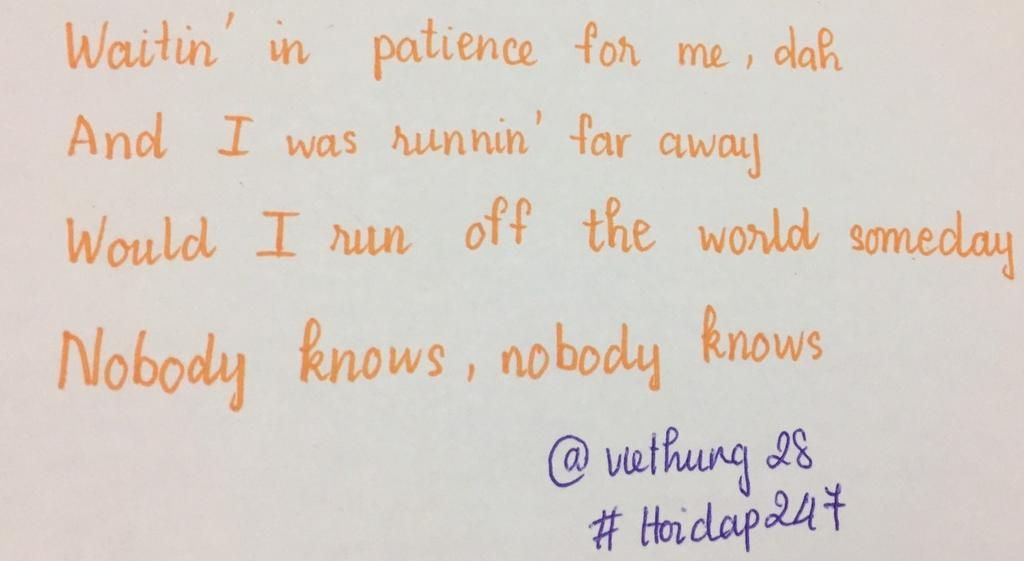 Waitin' in patience for me, dah
And I was runnin' far away
Would I run off the world someday
Nobody knows, nobody knows
@ viethung 28
# Hoidap247